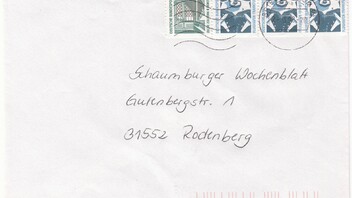 Schaumburger Wochenblatt
Gutenbergstr. 1
31552 Rodenberg